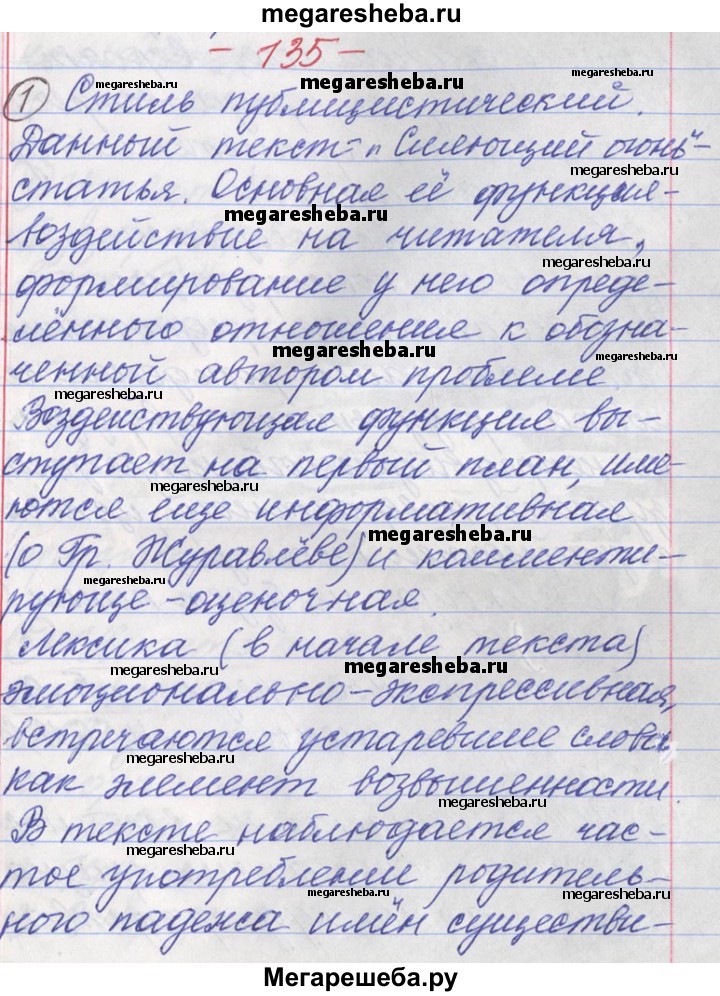 megaresheba.ru
- 135 -
megaresheba.ru
megaresheba.ru
megaresheba.ru
① Стиль публицистический.
Данный текст - "Сияющий огонь" -
megaresheba.ru
статья. Основная её функция -
megaresheba.ru
воздействие на читателя,
megaresheba.ru
формирование у него опреде-
лённого отношения к обозна-
megaresheba.ru
megaresheba.ru
ченной автором проблеме.
megaresheba.ru
Воздействующая функция вы-
megaresheba.ru
ступает на первый план, име-
megaresheba.ru
ются еще информативная
megaresheba.ru
(о Гр. Журавлёве) и комменти-
megaresheba.ru
рующе-оценочная.
Лексика (в начале текста)
megaresheba.ru
megaresheba.ru
эмоционально-экспрессивная,
встречаются устаревшие слова
megaresheba.ru
как элемент возвышенности
megaresheba.ru
В тексте наблюдается час-
megaresheba.ru
тое употребление родитель-
megaresheba.ru
ного падежа имён существи-
megaresheba.ru
Мегарешеба.ру